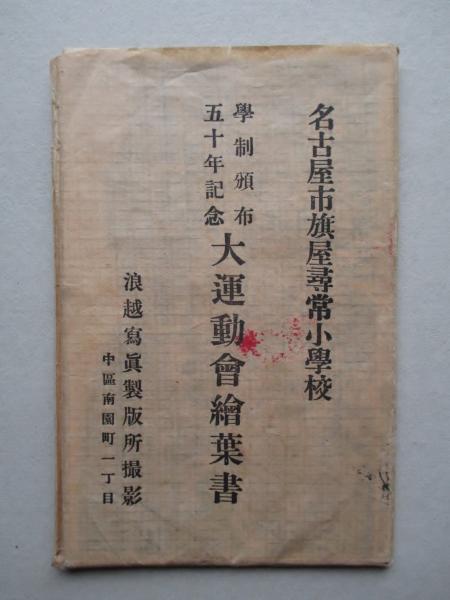 名古屋市旗屋尋常小學校
學制頒布
五十年記念
大運動會繪葉書
浪越寫眞製版所撮影
中區南園町一丁目